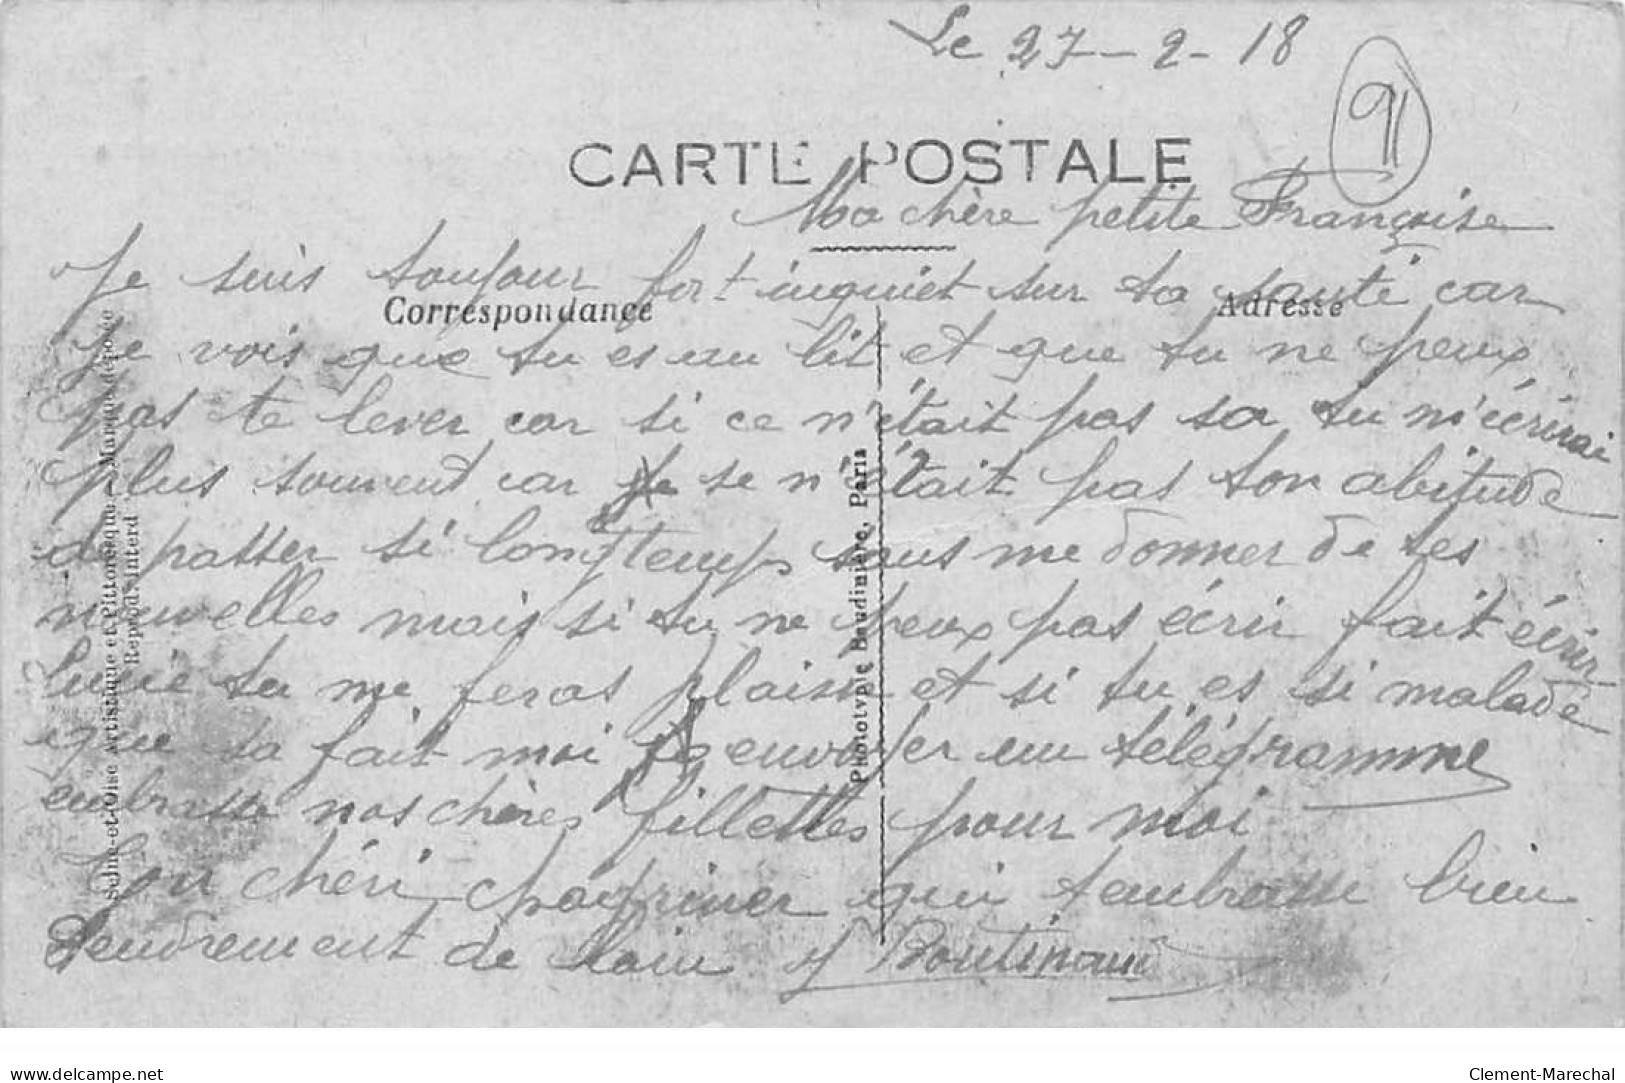 Le 27-2-18
91
CARTE POSTALE
Ma chère petite Françoise
Je suis toujour fort inquiet sur ta santé car
Correspondance
Adresse
je vois que tu es au lit et que tu ne peux
pas te lever car si ce n'était pas sa tu m'écrirai
plus souvent car se n'était pas ton abitude
de passer si longtemps sans me donner de tes
nouvelles mais si tu ne peux pas écrir fait écrir
Lucie tu me feras plaisir et si tu es si malade
que sa fait moi envoyer un télégramme
embrasse nos chères fillettes pour moi
Ton chéri qui tembrasse bien
tendrement de loin
Seine-et-Oise Artistique et Pittoresque - Marque déposée
Reprod. interd
Phototypie Baudinière, Paris
delcampe.net
Clement-Marechal